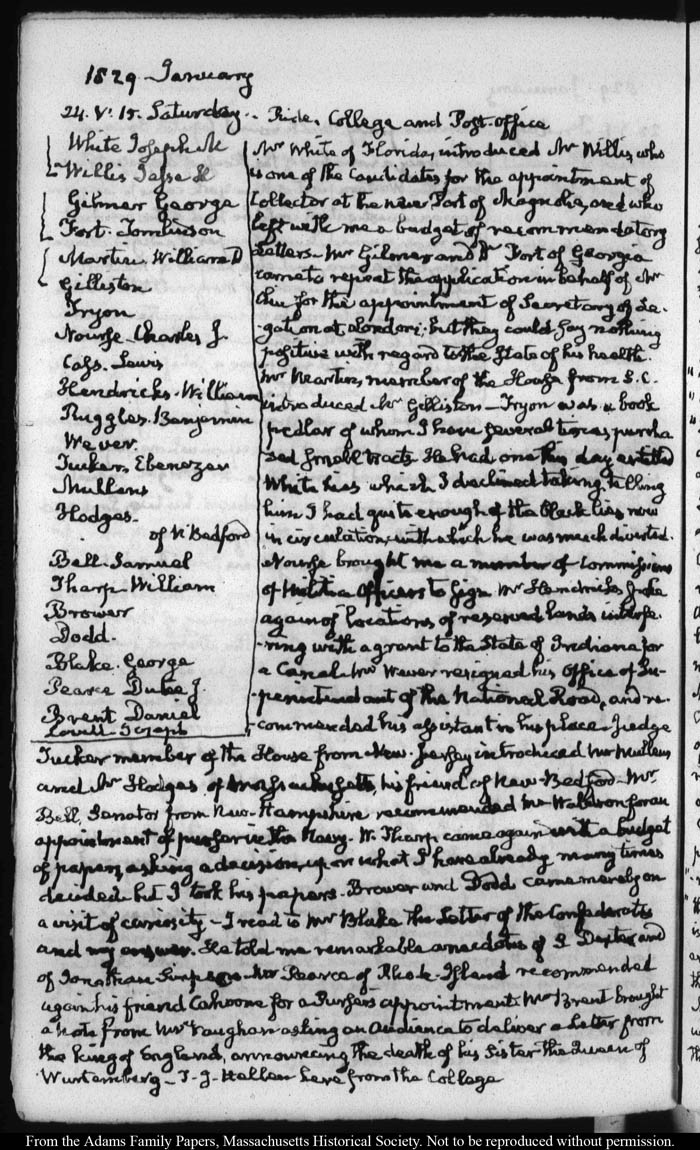 1829 January
24. V: 15. Saturday. Ride. College and Post-office
White Joseph M
Willis Jesse H
Gilmer George
Fort. Tomlinson
Martin. William D
Gilliston
Tryon
Nourse. Charles J.
Cass. Lewis
Hendricks. William
Ruggles. Benjamin
Wever.
Tucker. Ebenezer
Mullens
Hodges.
of N. Bedford
Bell. Samuel
Tharp. William
Brower
Dodd.
Blake. George
Pearce Dutee J.
Brent Daniel
Lovell Joseph
Mr. White of Florida, introduced Mr Willis, who
is one of the Candidates for the appointment of
Collector at the new Port of Magnolia, and who
left with me a budget of recommendatory
Letters. Mr Gilmer and Dr Fort of Georgia
came to repeat the application in behalf of Mr
for the appointment of Secretary of Le-
-gation at London: but they could say nothing
positive with regard to the State of his health.
Mr Martin, member of the House from S. C.
introduced Mr Gilliston— Tryon was a book
pedlar of whom I have several times purcha
sed small tracts. He had one this day entitled
White lies which I declined taking, telling
him I had quite enough of the black lies now
in circulation, with which he was much diverted.
Nourse brought me a number of Commissions
of Militia Officers to sign. Mr Hendricks spoke
again of locations of reserved lands interfe-
-ring with a grant to the State of Indiana for
a Canal. Mr Wever resigned his Office of Su-
-perintendant of the National Road, and re-
-commended his assistant in his place. Judge
Tucker member of the House from New-Jersey introduced Mr Mullens
and Mr Hodges of Massachusetts, his friend of New-Bedford. Mr
Bell, Senator from New-Hampshire recommended Mr Waldron for an
appointment of purser in the Navy. W. Tharp came again with a budget
of papers, asking a decision upon what I have already many times
decided but I took his papers. Brower and Dodd came merely on
a visit of curiosity— I read to Mr Blake the Letter of the Confederates
and my answer. He told me remarkable anecdotes of S Dexter, and
of Jonathan Mr Pearce of Rhode-Island recommended
again his friend Cahoone for a Purser's appointment. Mr Brent brought
a Note from Mr Vaughan asking an Audience to deliver a Letter from
the king of England, announcing the death of his Sister the Queen of
Wurtemberg— T. J. Hellen here from the College
From the Adams Family Papers, Massachusetts Historical Society. Not to be reproduced without permission.